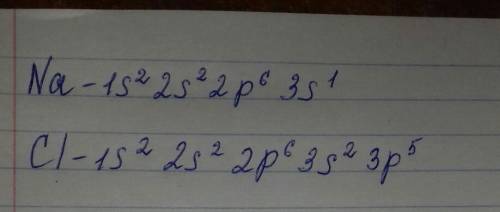 Na - 1s² 2s² 2p⁶ 3s¹
Cl - 1s² 2s² 2p⁶ 3s² 3p⁵